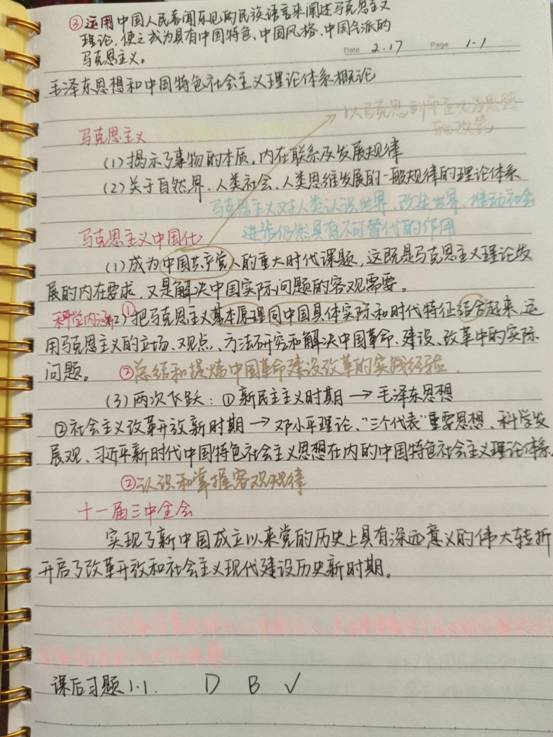 ③运用中国人民喜闻乐见的民族语言来阐述马克思主义
理论,使之成为具有中国特色、中国风格、中国气派的
马克思主义。
Date 2.17 Page 1.1
毛泽东思想和中国特色社会主义理论体系概论
马克思主义
(1)揭示了事物的本质,内在联系及发展规律
(2)关于自然界、人类社会、人类思维发展的一般规律的理论体系
马克思主义对人类认识世界、改造世界、推动社会
进步仍然具有不可替代的作用
马克思主义中国化
(1)成为中国共产党人的重大时代课题,这既是马克思主义理论发
展的内在要求,又是解决中国实际问题的客观需要。
科学内涵(2)①把马克思主义基本原理同中国具体实际和时代特征结合起来,运
用马克思主义的立场、观点、方法研究和解决中国革命、建设、改革中的实际
问题。 ②总结和提炼中国革命建设改革的实践经验
(3)两次飞跃:①新民主主义时期→毛泽东思想
②社会主义改革开放新时期→邓小平理论、“三个代表”重要思想、科学发
展观、习近平新时代中国特色社会主义思想在内的中国特色社会主义理论体系
②认识和掌握客观规律
十一届三中全会
实现了新中国成立以来党的历史上具有深远意义的伟大转折
开启了改革开放和社会主义现代建设历史新时期。
课后习题1.1. D B √